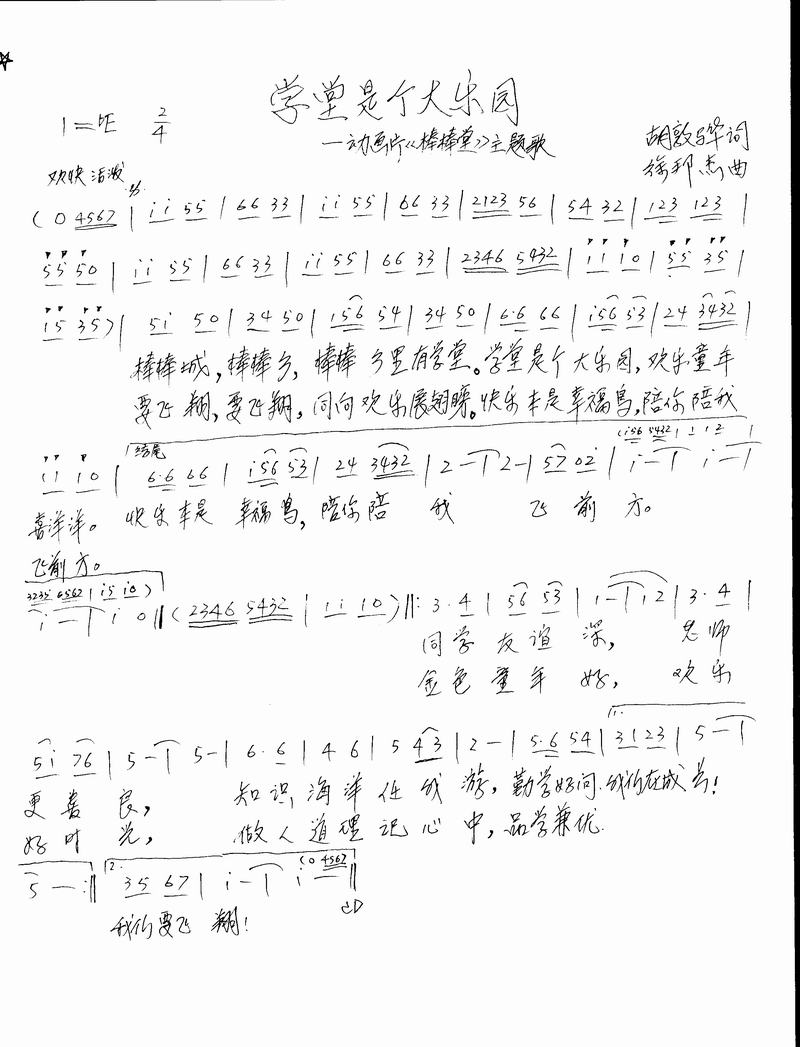 学堂是个大乐园
1=bE 2/4
—动画片《棒棒堂》主题歌
胡敦骅词
徐邦杰曲
欢快 活泼
(0 4567 | i i 55 | 66 33 | i i 55 | 66 33 | 2123 56 | 54 32 | 123 123 |
55 50 | i i 55 | 66 33 | i i 55 | 66 33 | 2346 5432 | 11 10 | 55 35 |
i5 35) | 5i 50 | 34 50 | i56 54 | 34 50 | 6·6 66 | i56 53 | 24 3432 |
棒棒城,棒棒乡,棒棒乡里有学堂。学堂是个大乐园,欢乐童年
要飞翔,要飞翔,同向欢乐展翅膀。快乐本是幸福鸟,陪你陪我
结尾
(i56 5432 | 1 12 1
11 10 | 6·6 66 | i56 53 | 24 3432 | 2 - | 2 - | 57 02 | i - | i -
喜洋洋。快乐本是 幸福鸟,陪你陪 我 飞 前 方。
飞前方。
3235 6562 | i5 i0)
i - | i 0 || (2346 5432 | 11 10) ||: 3·4 | 56 53 | i - | i2 | 3·4 |
同学友谊深, 老师
金色童年好, 欢乐
1.
5i 76 | 5 - | 5 - | 6·6 | 46 | 5 43 | 2 - | 5·6 54 | 3123 | 5 - |
更善良, 知识海洋任我游,勤学好问.我们在成长!
好时光, 做人道理记心中,品学兼优.
2. (0 4567
5 - :|| 35 67 | i - | i - ||
我们要飞翔!